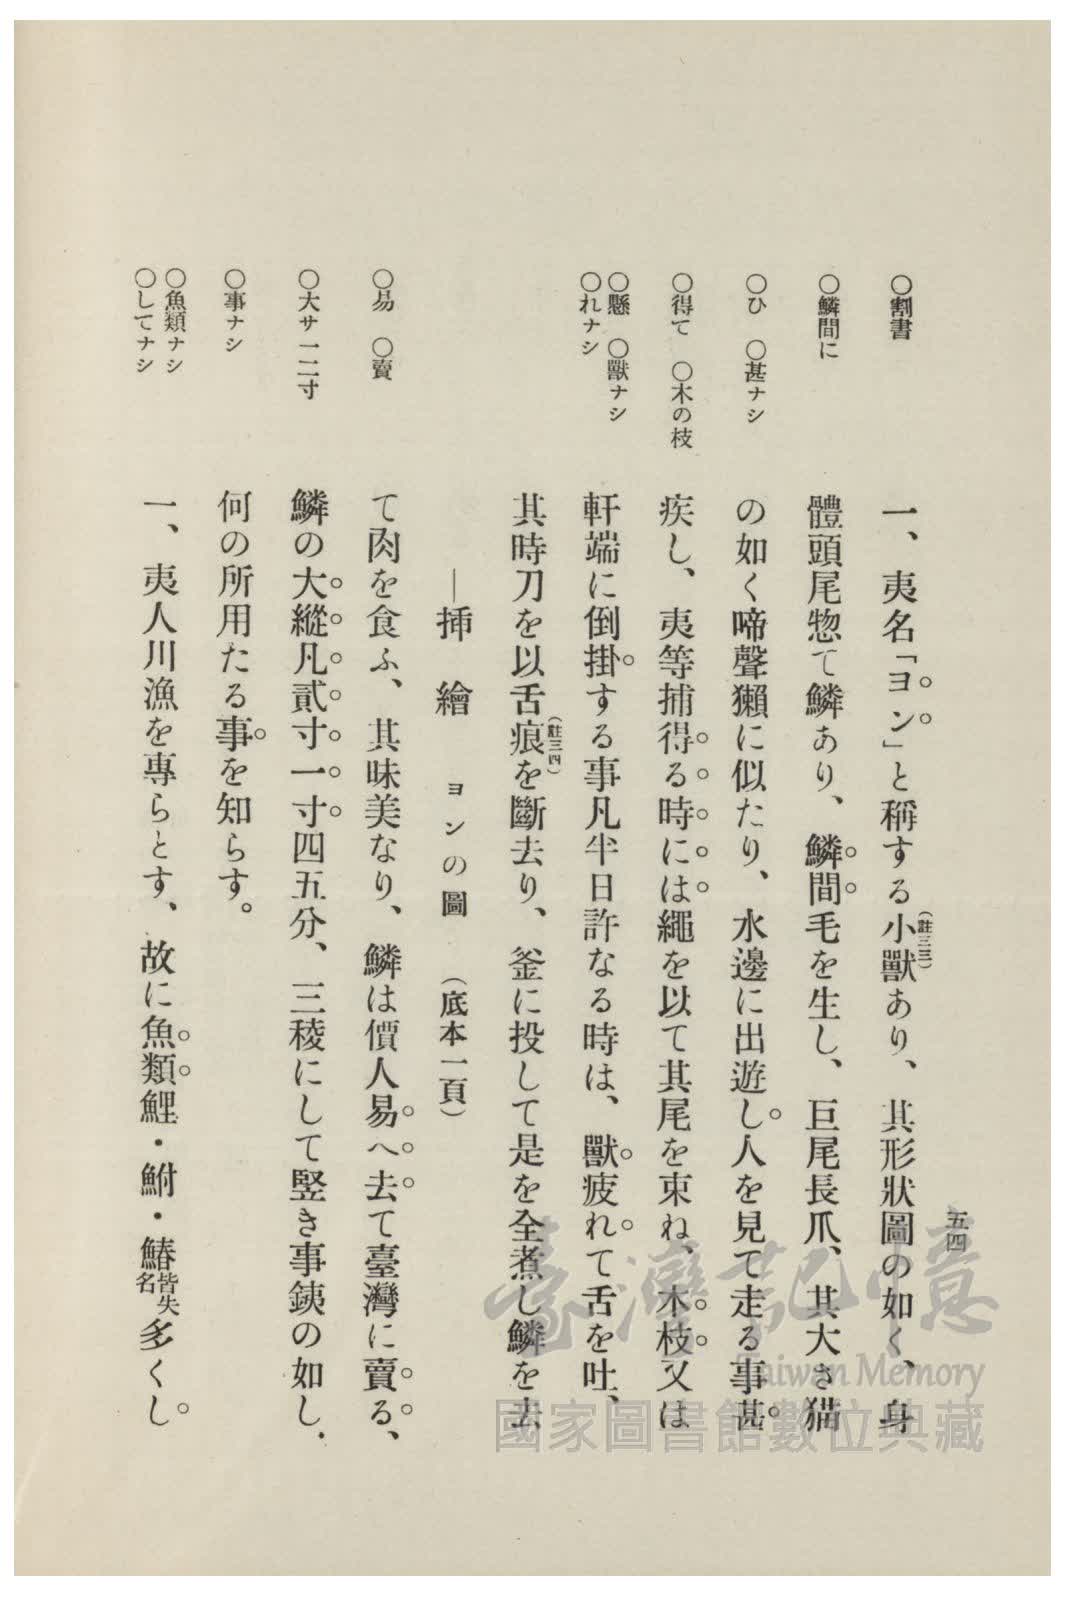 五四
○割書
一、夷名「ヨン」と稱する小獸(註三三)あり、其形狀圖の如く、身
○鱗間に
體頭尾惣て鱗あり、鱗間毛を生し、巨尾長爪、其大さ猫
○ひ ○甚ナシ
の如く啼聲獺に似たり、水邊に出遊し人を見て走る事甚
○得て ○木の枝
疾し、夷等捕得る時には繩を以て其尾を束ね、木枝又は
○懸 ○獸ナシ
○れナシ
軒端に倒掛する事凡半日許なる時は、獸疲れて舌を吐、
其時刀を以舌痕(註三四)を斷去り、釜に投して是を全煮し鱗を去
―挿繪 ヨンの圖 (底本一頁)
○易 ○賣
て肉を食ふ、其味美なり、鱗は價人易へ去て臺灣に賣る、
○大サ一二寸
鱗の大縱凡貳寸一寸四五分、三稜にして竪き事銕の如し.
○事ナシ
何の所用たる事を知らす。
○魚類ナシ
○してナシ
一、夷人川漁を專らとす、故に魚類鯉・鮒・鰆皆失名多くし
臺灣記憶
Taiwan Memory
國家圖書館數位典藏